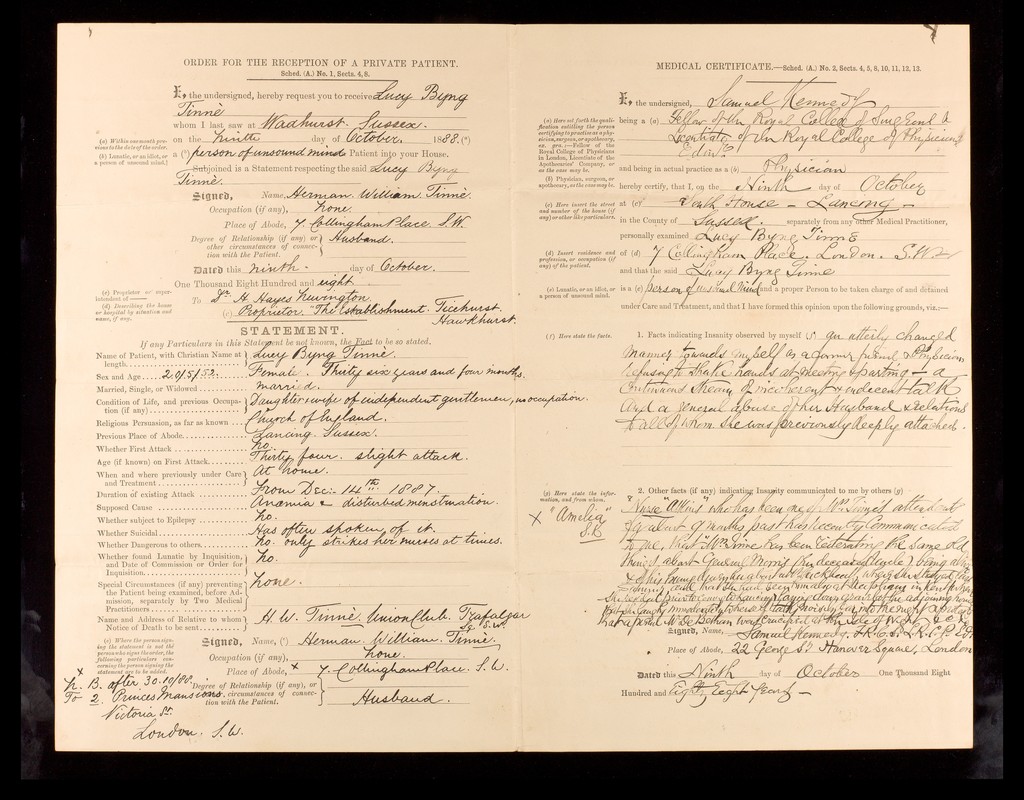 ORDER FOR THE RECEPTION OF A PRIVATE PATIENT.
Sched. (A.) No. 1, Sects. 4, 8.
I, the undersigned, hereby request you to receive Lucy Byng
Tinnè
whom I last saw at Wadhurst. Sussex.
on the ninth day of October. 1888. (a)
(a) Within one month previous to the date of the order.
(b) Lunatic, or an idiot, or a person of unsound mind.
a (b) person of unsound mind Patient into your House.
Subjoined is a Statement respecting the said Lucy Byng
Tinnè.
Signed, Name, Herman William Tinnè.
Occupation (if any), none.
Place of Abode, 7. Collingham Place. S.W.
Degree of Relationship (if any) or other circumstances of connection with the Patient. } Husband.
Dated this ninth day of October.
One Thousand Eight Hundred and eight.
(c) Proprietor or superintendent of ——
(d) Describing the house or hospital by situation and name, if any.
To Dr. H. Hayes Newington
(c) Proprietor "The Establishment. Ticehurst.
Hawkhurst.
STATEMENT.
If any Particulars in this Statement be not known, the Fact to be so stated.
Name of Patient, with Christian Name at length } Lucy Byng Tinnè.
Sex and Age 20/5/52. Female. Thirty six years and four months.
Married, Single, or Widowed married.
Condition of Life, and previous Occupation (if any) } Daughter & wife of independent gentlemen, no occupation.
Religious Persuasion, as far as known Church of England.
Previous Place of Abode Lancing. Sussex.
Whether First Attack no.
Age (if known) on First Attack Thirty four. slight attack.
When and where previously under Care and Treatment } At home.
Duration of existing Attack From Dec: 14th 1887.
Supposed Cause Anæmia & disturbed menstruation.
Whether subject to Epilepsy no.
Whether Suicidal Has often spoken of it.
Whether Dangerous to others no. only strikes her nurses at times.
Whether found Lunatic by Inquisition, and Date of Commission or Order for Inquisition } no.
Special Circumstances (if any) preventing the Patient being examined, before Admission, separately by Two Medical Practitioners } none.
Name and Address of Relative to whom Notice of Death to be sent } H. W. Tinnè. Union Club. Trafalgar
Sq. S.W.
(e) Where the person signing the statement is not the person who signs the order, the following particulars concerning the person signing the statement are to be added.
Signed, Name, (e) Herman William Tinnè.
Occupation (if any), none.
Place of Abode, x 7. Collingham Place. S.W.
Degree of Relationship (if any), or other circumstances of connection with the Patient. } Husband.
x
N. B. after 30.10/88
To 2. Princes Mansions
Victoria St.
London. S.W.
MEDICAL CERTIFICATE.—Sched. (A.) No. 2, Sects. 4, 5, 8, 10, 11, 12, 13.
I, the undersigned, Samuel Kennedy
(a) Here set forth the qualification entitling the person certifying to practise as a physician, surgeon, or apothecary, ex. gra.:—Fellow of the Royal College of Physicians in London, Licentiate of the Apothecaries' Company, or as the case may be.
being a (a) Fellow of the Royal College of Surgeons &
Licentiate of the Royal College of Physicians
Edinr.
(b) Physician, surgeon, or apothecary, as the case may be.
and being in actual practice as a (b) Physician
hereby certify, that I, on the Ninth day of October
(c) Here insert the street and number of the house (if any) or other like particulars.
at (c) House — Lancing —
in the County of Sussex separately from any other Medical Practitioner,
personally examined Lucy Byng Tinnè
(d) Insert residence and profession, or occupation (if any) of the patient.
of (d) 7 Collingham Place. London. S.W.
and that the said Lucy Byng Tinnè
(e) Lunatic, or an idiot, or a person of unsound mind.
is a (e) person of unsound Mind and a proper Person to be taken charge of and detained
under Care and Treatment, and that I have formed this opinion upon the following grounds, viz.:—
(f) Here state the facts.
1. Facts indicating Insanity observed by myself (f) an utterly changed
manner towards myself as a former friend & Physician
refusing to shake hands at meeting & parting — a
continued stream of incoherent & indecent talk
and a general abuse of her Husband & relations
to all of whom she was previously deeply attached.
(g) Here state the information, and from whom.
2. Other facts (if any) indicating Insanity communicated to me by others (g)
x "Amelia"
S.K.
x Nurse "Allies" who has been one of Mrs Tinnès attendants
for about 9 months past has recently communicated
to me, that "Mrs Tinnè has been reiterating the same old
things about General Morris (her deceased Uncle) being alive
Signed, Name, Samuel Kennedy. F.R.C.S. L.R.C.P. Edin
Place of Abode, 22 George St Hanover Square, London
Dated this Ninth day of October One Thousand Eight
Hundred and Eighty Eight years —